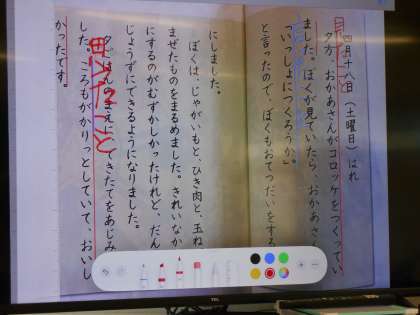 四月十八日（土曜日）はれ
夕方、おかあさんがコロッケをつくってい
ました。ぼくが見ていたら、おかあさ
「いっしょにつくろうか」
と言ったので、ぼくもおてつだいをする
にしました。
ぼくは、じゃがいもと、ひき肉と、玉ね
まぜたものをまるめました。きれいなか
にするのがむずかしかったけれど、だん
じょうずにできるようになりました。
思ったこと
夕ごはんのまえに、できたてをあじみ
した。ころもがかりっとしていて、おいし
かったです。
TCL